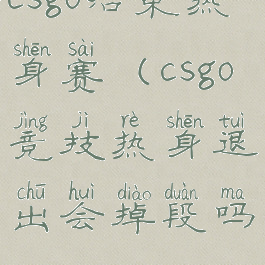 csgo结束热
shēn sài
身赛（csgo
jìng jì rè shēn tuì
竞技热身退
chū huì diào duàn ma
出会掉段吗